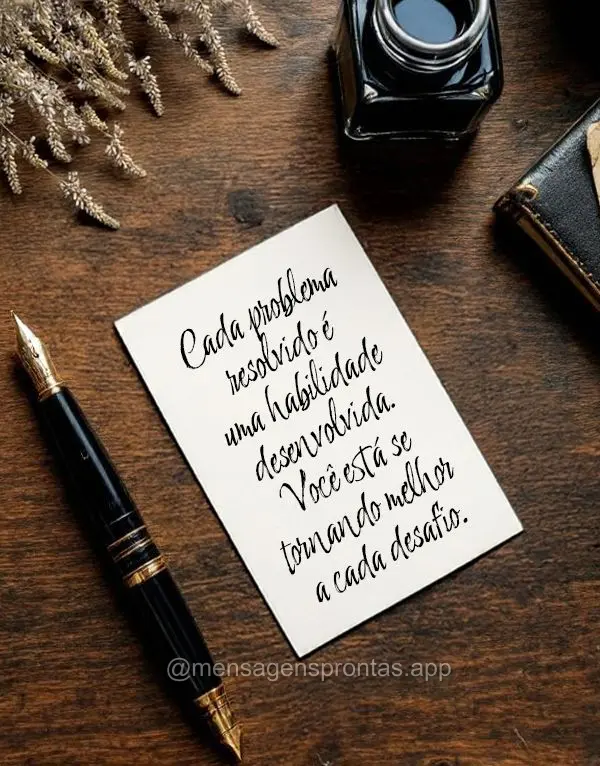 Cada problema
resolvido é
uma habilidade
desenvolvida.
Você está se
tornando melhor
a cada desafio.
@mensagensprontas.app